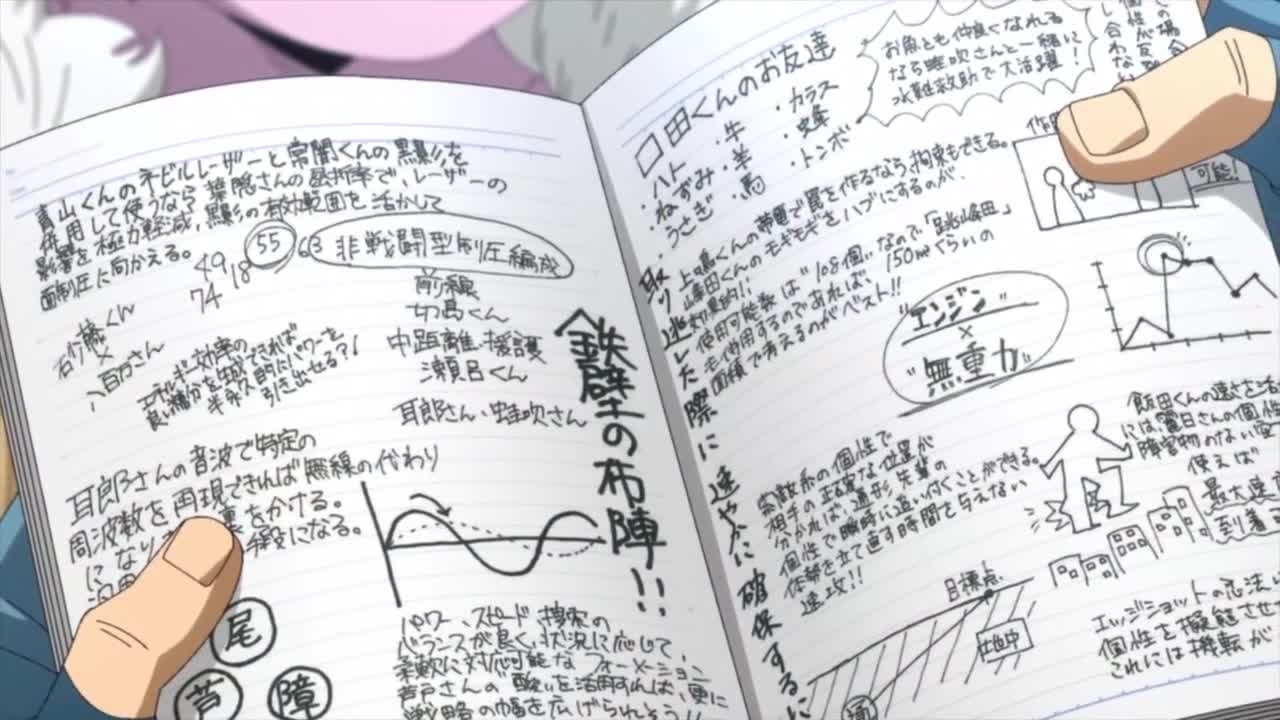 青山くんのネビルレーザーと常闇くんの黒影を
併用して使うなら葉隠さんの屈折率で、レーザーの
影響を極力軽減、黒影の有効範囲を活かして
面制圧に向かえる。
49 18 55 63
74
非戦闘型制圧編成
前線
切島くん
中距離・援護
瀬呂くん
耳郎さん・蛙吹さん
砂藤くん
×
八百万さん
エネルギー効率の
良い糖分を生成できれば
半永久的だパワーを
引き出せる?!
鉄壁の布陣!!
耳郎さんの音波で特定の
周波数を再現できれば無線の代わり
になり
をかける。
役になる。
尾
芦
障
パワー、スピード、捜索の
バランスが良く、状況に応じて、
柔軟に対応可能なフォーメーション
芦戸さんの酸を活用すれば、更に
戦略の幅を広げられそう!!
口田くんのお友達
・ハト
・ねずみ
・うさぎ
・牛
・羊
・馬
・カラス
・蜂
・トンボ
お魚とも仲良くなれる
なら蛙吹さんと一緒に
水難救助で大活躍!
可能!
上鳴くんの帯電で罠を作るなら、拘束もできる。
峰田くんのモギモギをハブにするのが、
効果的!!
使用可能数は"108個"なので
も使用するのであれば、150㎡ぐらいの
面積で考えるのがベスト!!
"エンジン"
×
"無重力"
取り逃した際に速やかに確保するに
索敵系の個性で
相手の正確な位置が
分かれば、通形先輩の
個性で瞬時に追い付くことができる。
体勢を立て直す時間を与えない
速攻!!
飯田くんの速さを活
には麗日さんの個性
障害物のない空
使えば
最大速
到着
目標点
エッジショットの忍法
個性を擬態させ
これには機転が